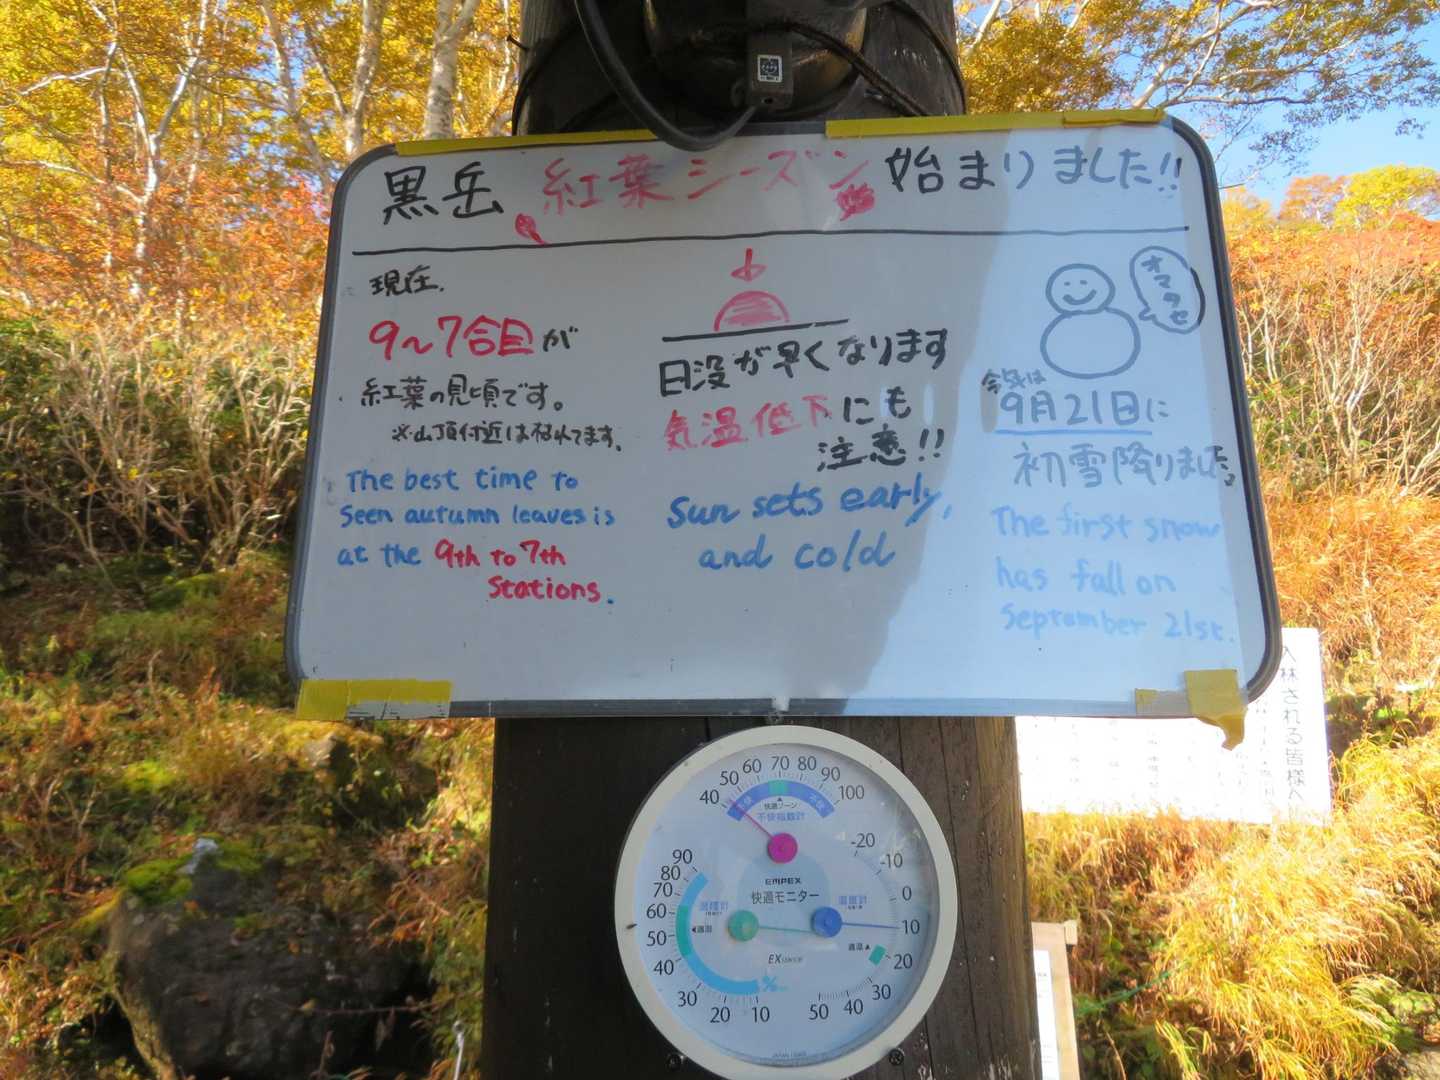 黒岳 紅葉シーズン始まりました!!
現在、
9~7合目が
紅葉の見頃です。
※山頂付近は枯れてます。
The best time to
Seen autumn leaves is
at the 9th to 7th
Stations.
日没が早くなります
気温低下にも
注意!!
Sun sets early,
and cold
オマタセ
今年は
9月21日に
初雪降りました。
The first snow
has fall on
September 21st.
入林される皆様へ
40 50 60 70 80 90 100
不快 不快
快適ゾーン
不快指数計
EMPEX
快適モニター
湿度計
温度計
適湿
適温
EX
90 80 70 60 50 40 30 20 10
%
-20 -10 0 10 20 30 40 50